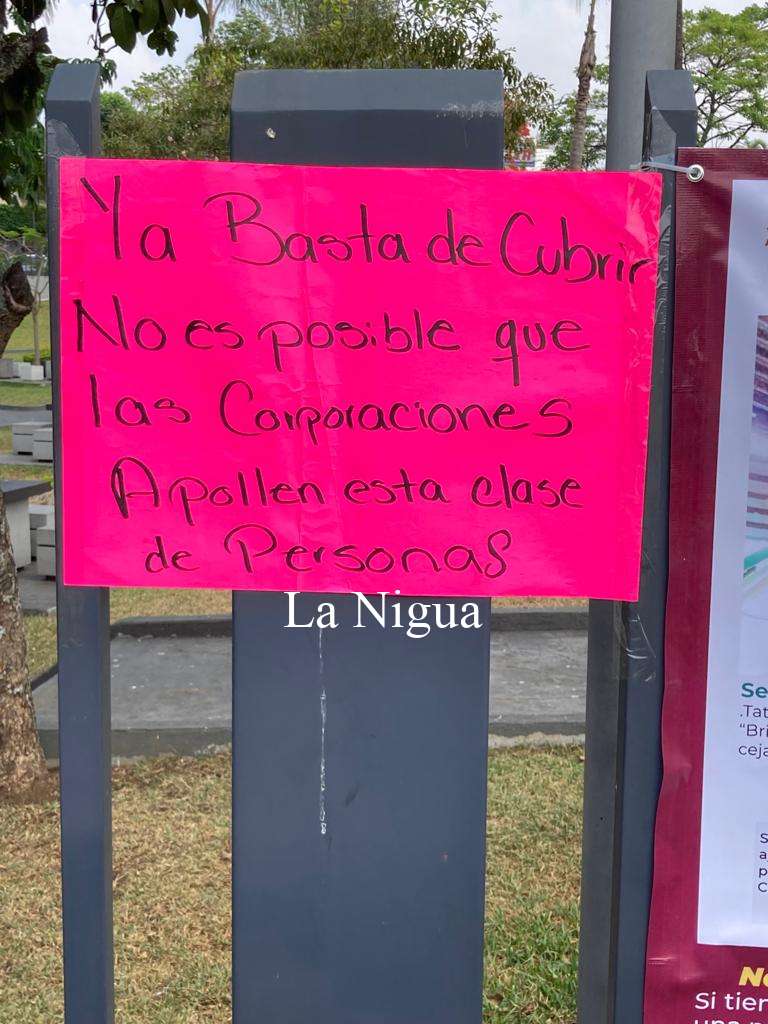 Ya Basta de Cubrir
No es posible que
las Corporaciones
Apollen esta clase
de Personas
La Nigua
Se
.Tat
"Bri
ceja
Si tien